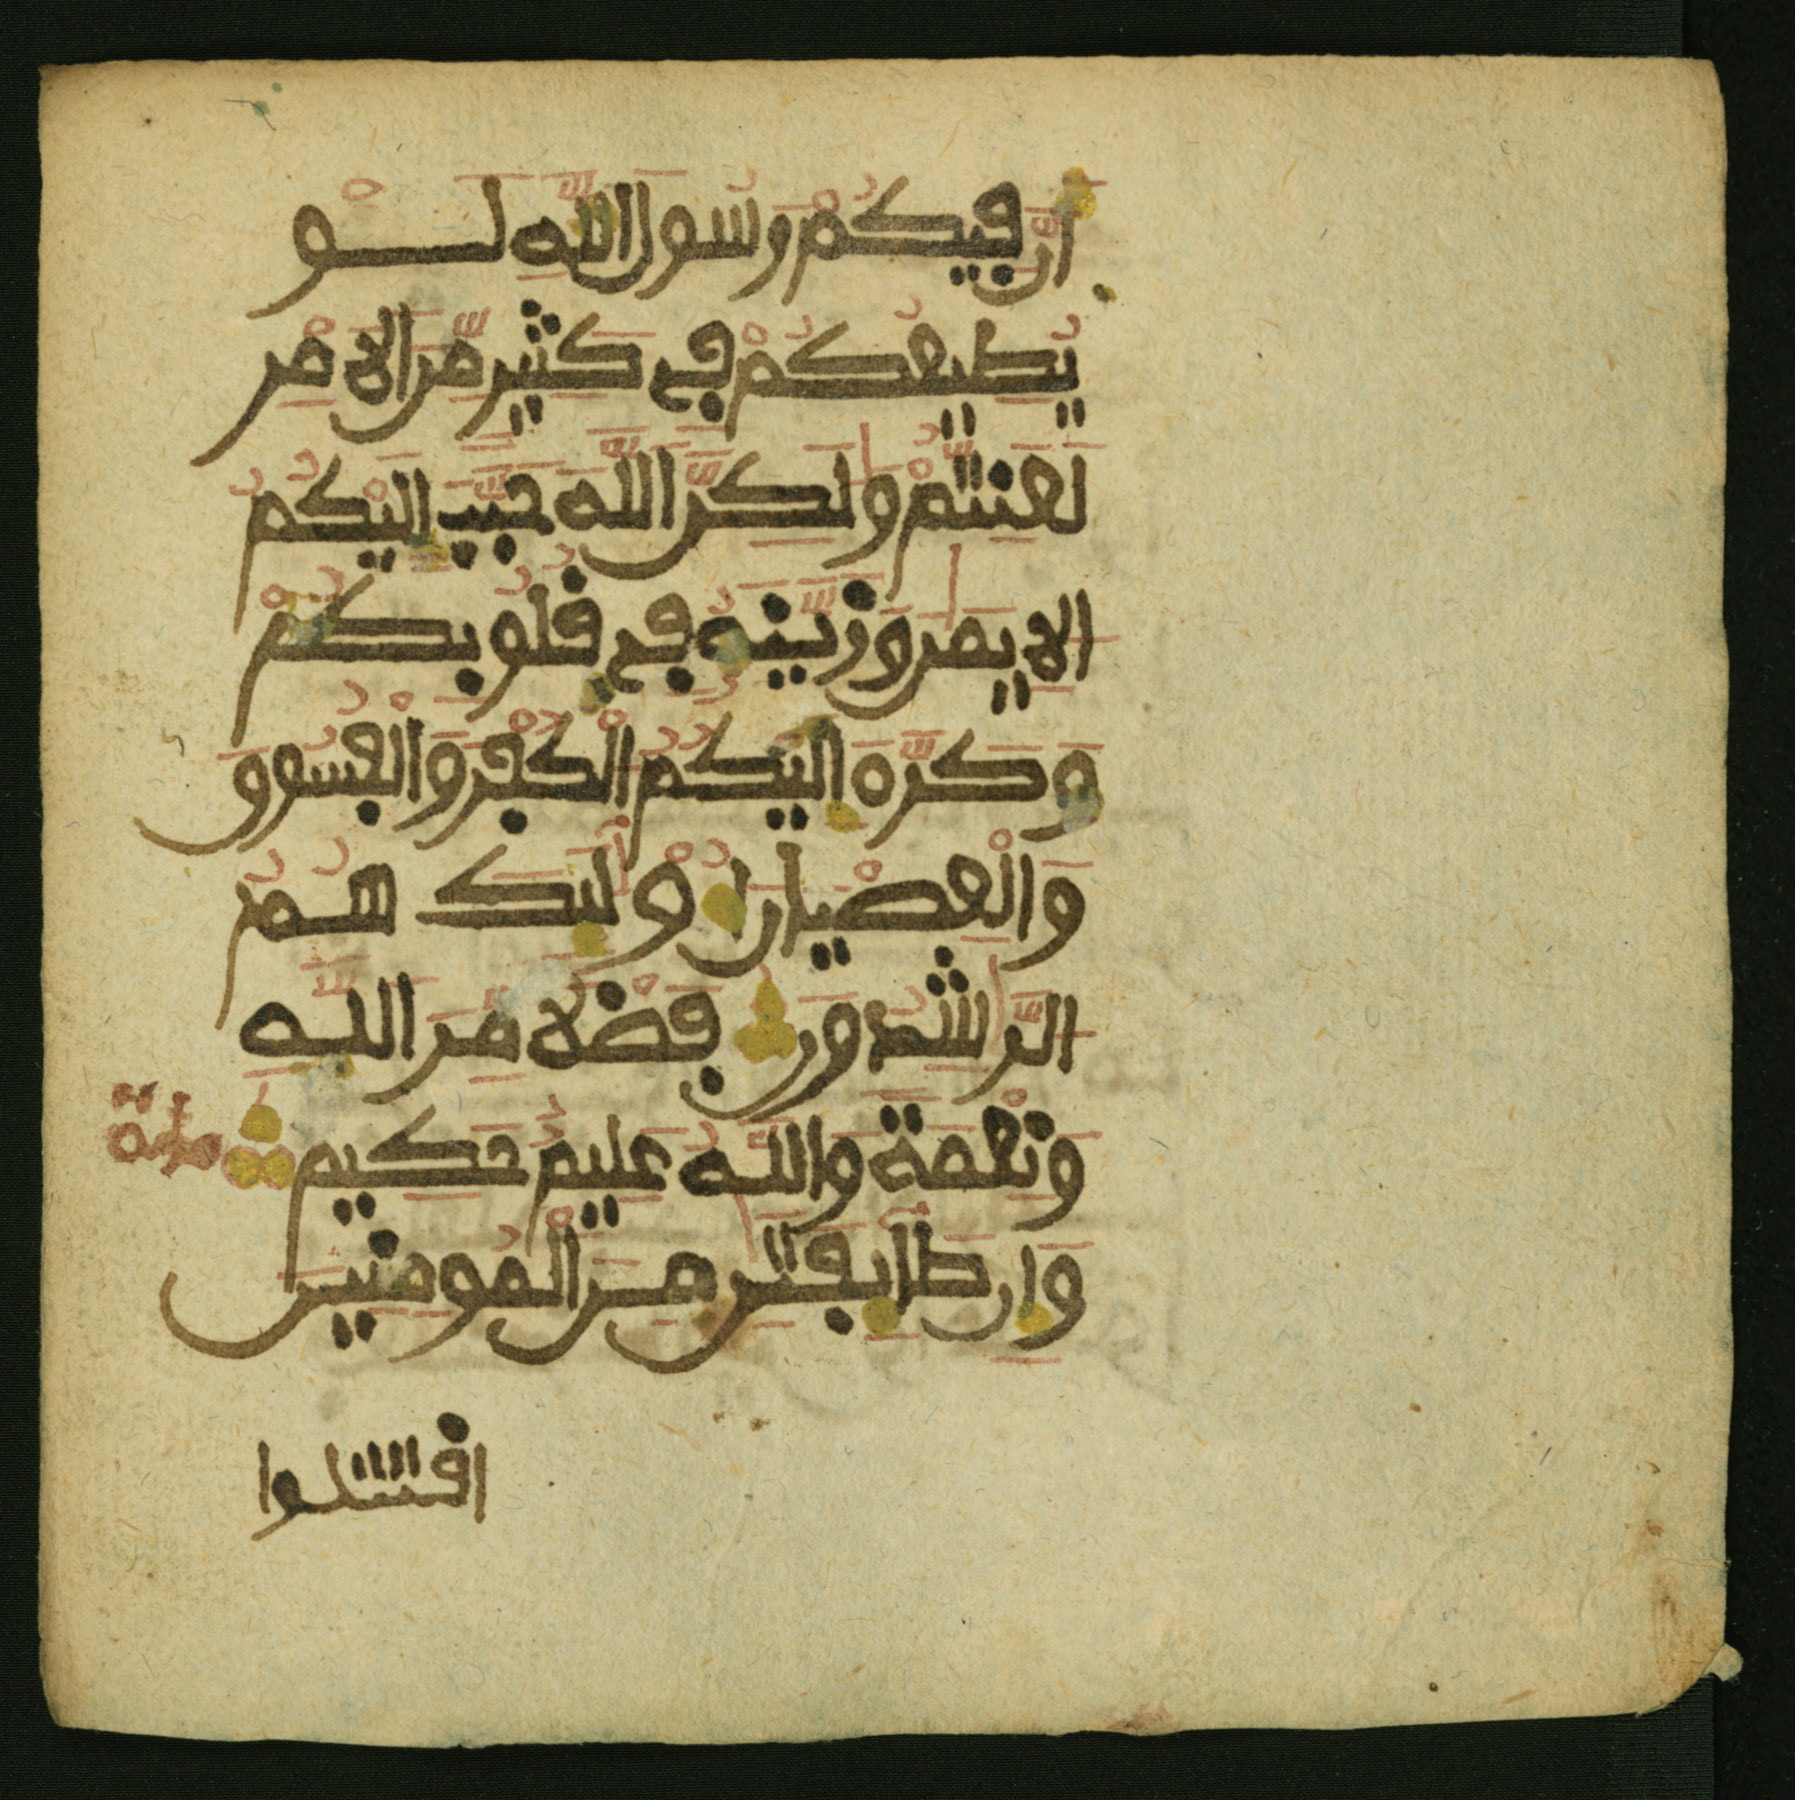 أَنَّ فِيكُمْ رَسُولَ اللَّهِ لَوْ
يُطِيعُكُمْ فِي كَثِيرٍ مِّنَ الَامْرِ
لَعَنِتُّمْ وَلَٰكِنَّ اللَّهَ حَبَّبَ إِلَيْكُمُ
الِايمَٰنَ وَزَيَّنَهُ فِي قُلُوبِكُمْ
وَكَرَّهَ إِلَيْكُمُ الْكُفْرَ وَالْفُسُوقَ
وَالْعِصْيَانَ أُوْلَٰئِكَ هُمُ
الرَّٰشِدُونَ فَضْلًا مِّنَ اللَّهِ
وَنِعْمَةً وَاللَّهُ عَلِيمٌ حَكِيمٌ
وَإِن طَائِفَتَٰنِ مِنَ الْمُومِنِينَ
اقتتلوا